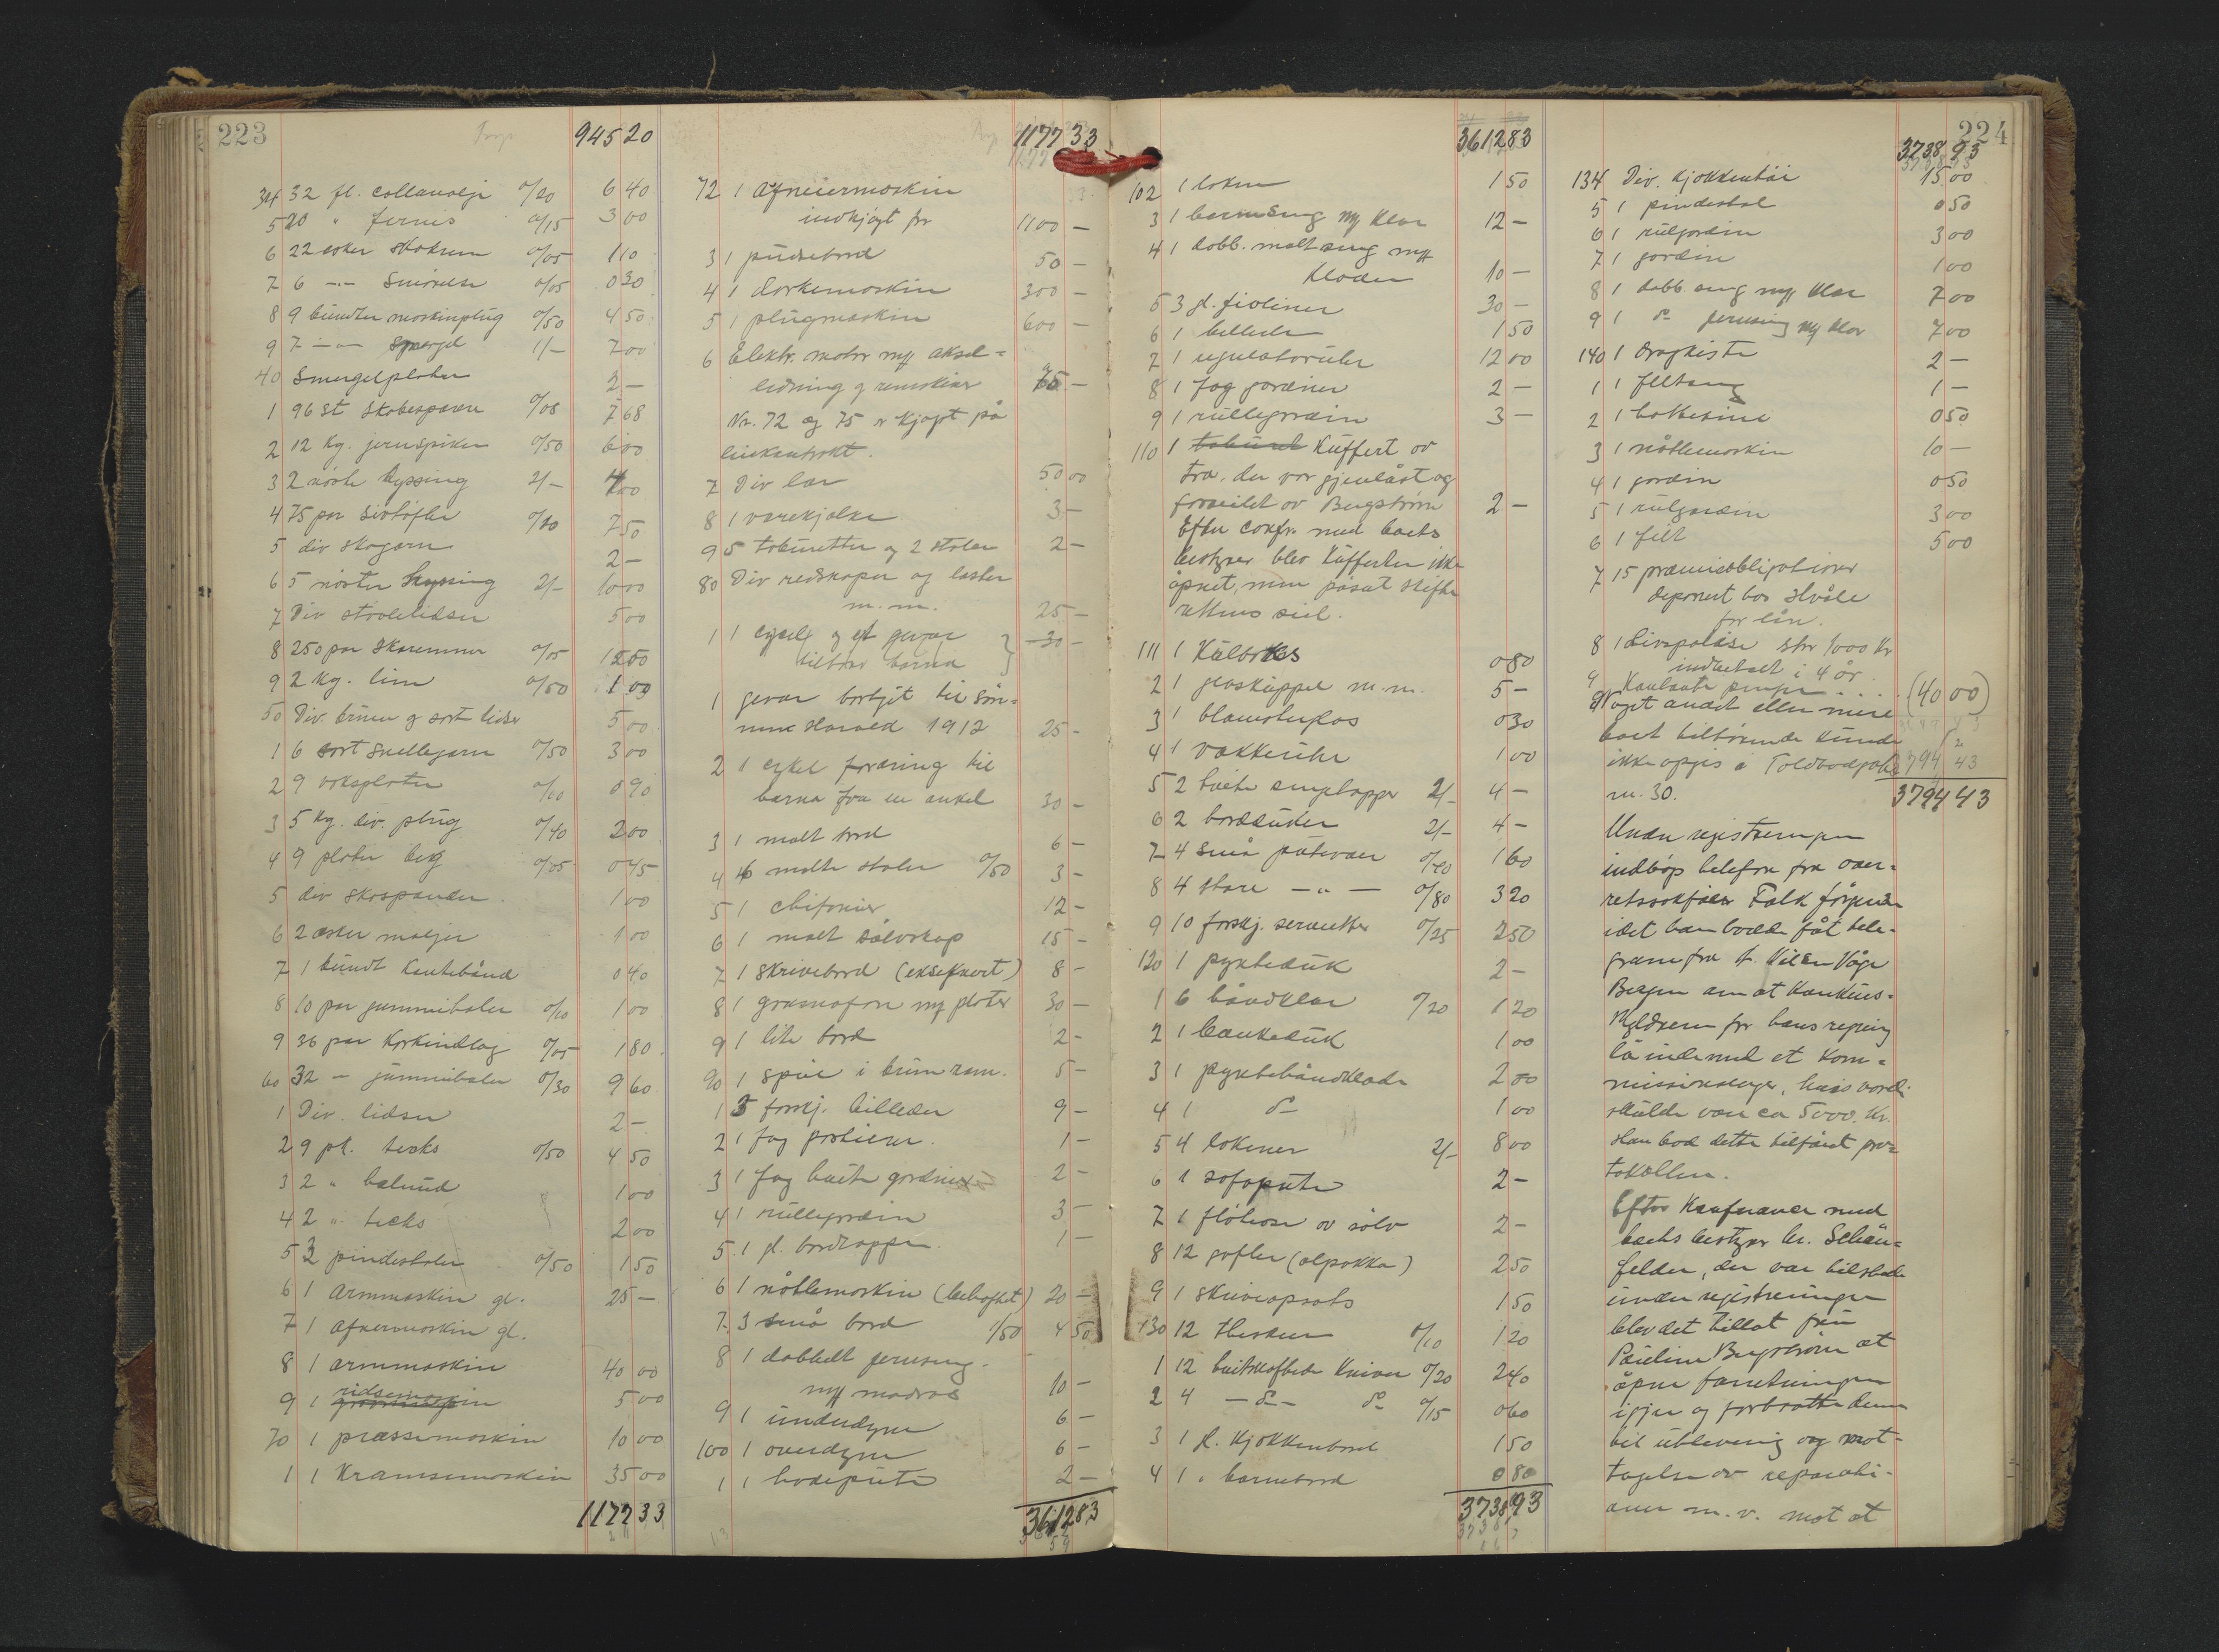 223
945 20
34 32 fl. collanolje 0/20 6 40
5 20 " fernis 0/15 3 00
6 22 esker 0/05 1 10
7 6 -"- Smörelse 0/05 0 30
8 9 bundter maskinplug 0/50 4 50
9 7 -"- 1/- 7 00
40 Smergelplater 2 -
1 96 st 0/08 7 68
2 12 kg. jernspiker 0/50 6 00
3 2 nöste hyssing 2/- 4 00
4 75 par 0/10 7 50
5 div skogarn 2 -
6 5 nöster hyssing 2/- 10 00
7 Div 5 00
8 250 par skoremmer 0/05 12 50
9 2 kg. lim 0/50 1 00
50 Div. brune og sort lidser 5 00
1 6 sort snellegarn 0/50 3 00
2 9 voksplater 0/10 0 90
3 5 kg. div. plug 0/40 2 00
4 9 plater beg 0/05 0 45
5 div skospænder 1 00
6 2 æsker maljer 1 00
7 1 bundt Kantebånd 0 40
8 10 par gummihæler 0/10 1 00
9 36 par Korkindlæg 0/05 1 80
60 32 - gummihæler 0/30 9 60
1 Div. lidser 2 -
2 9 pk. tecks 0/50 4 50
3 2 " 1 00
4 2 " tecks 2 00
5 3 pindestoler 0/50 1 50
6 1 armmaskin gl. 25 -
7 1 gl.
8 1 armmaskin 40 00
9 1 ridsemaskin 5 00
70 1 pressemaskin 10 00
1 1 Kramsemaskin 35 00
1177 33
1177 33
72 1
indkjøpt for 1100 -
3 1 pudsebord 50 -
4 1 300 -
5 1 plugmaskin 600 -
6 Elektr. motor m/ aksel-
ledning og remskiver
Nr. 72 og 75 er kjøpt på
7 Div lær 50 00
8 1 varekjelke 3 -
9 5 taburetter og 2 stoler 2 -
80 Div redskaper og læster
m.m. 25 -
1 1 og et gevær
tilhører barna } 30 -
1 gevær bortgit til søn-
nen Harald 1912 25 -
2 1 cykel foræring til
barna fra en onkel 30 -
3 1 malt bord 6 -
4 6 malte stoler 0/50 3 -
5 1 chifonier 12 -
6 1 malt sølvskap 15 -
7 1 skrivebord (eksekvert) 8 -
8 1 gramofon m/ plater 30 -
9 1 lite bord 2 -
90 1 speil i brun ram. 5 -
1 5 forskj. billeder 9 -
2 1 fag portierer. 1 -
3 1 fag hvite gardiner 2 -
4 1 rullegardin 3 -
5 1 gl. bordtæppe 1 -
6 1 nåtlemaskin (beheftet) 20 -
7 3 små bord 1/50 4 50
8 1 dobbelt jernseng
m/ madras 10 -
9 1 underdyne 6 -
100 1 overdyne 6 -
1 1 hodepute 2 -
3612 83
3612 83
102 1 laken 1 50
3 1 barneseng m/ klær 12 -
4 1 dobb. malt seng m/
klæder 10 -
5 3 gl. fioliner 30 -
6 1 billede 1 50
7 1 regulatoruhr 12 00
8 1 fag gardiner 2 -
9 1 rullegardin 3 -
110 1 Kuffert av
træ, der var gjenlåst og
forseilet av Bergstrøm 2 -
Efter confr. med boets
bestyrer blev kufferten ikke
åpnet, men påsat skifte
rettens seil.
111 1 0 80
2 1 glaskuppel m.m. 5 -
3 1 blomsterglas 0 30
4 1 vækkeruhr 1 00
5 2 hvite sengetæpper 2/- 4 -
6 2 bordduker 2/- 4 -
7 4 små putevær 0/40 1 60
8 4 store -"- 0/80 3 20
9 10 forskj. servietter 0/25 2 50
120 1 pynteduk 2 -
1 6 håndklær 0/20 1 20
2 1 1 00
3 1 pyntehåndklæde 2 00
4 1 do 1 00
5 4 lakener 2/- 8 00
6 1 sofapute 2 -
7 1 av sölv 2 -
8 12 gafler (alpakka) 2 50
9 1 skriveopsats 1 50
130 12 theskeer 0/10 1 20
1 12 hvitskaftede kniver 0/20 2 40
2 4 -do- do 0/15 0 60
3 1 gl. kjøkkenbord 1 50
4 1 " barnebord 0 80
3738 93
224
3738 93
134 Div. kjøkkentöi 15 00
5 1 pindestol 0 50
6 1 rulgardin 3 00
7 1 gardin 1 00
8 1 dobb seng m/ klær 7 00
9 1 do jernseng m/ klær 7 00
140 1 dragkiste 2 -
1 1 feltseng 1 -
2 1 0 50
3 1 nåtlemaskin 10 -
4 1 gardin 0 50
5 1 rulgardin 3 00
6 1 filt 5 00
7 15 præmieobligationer
deponert hos
for lån.
8 1 Livspolise stor 1000 kr
indbetalt i 4 år
9 Kontante penger .... (40 00)
Noget andet eller mere
boet tilhørende kunde
ikke opgis i Toldbodgate
nr. 30. 3794 43
3794 43
Under registreringen
indløp telefon fra over-
retssakfører Falk
idet han hadde fåt tele-
gram fra
Bergen om at konkurs-
skyldneren for hans regning
lå inde med et kom-
missionslager, hvis værdi
skulde være ca 5000 kr.
Han bad dette tilført pro-
tokollen.
Efter Konferance med
boets bestyrer hr. Schön-
felder, der var tilstede
under registreringen
blev det tillat fru
Pauline Bergstrøm at
åpne forretningen
igjen og fortsætte denne
til utlevering og mot-
tagelse av reparati-
oner m.v. mot at